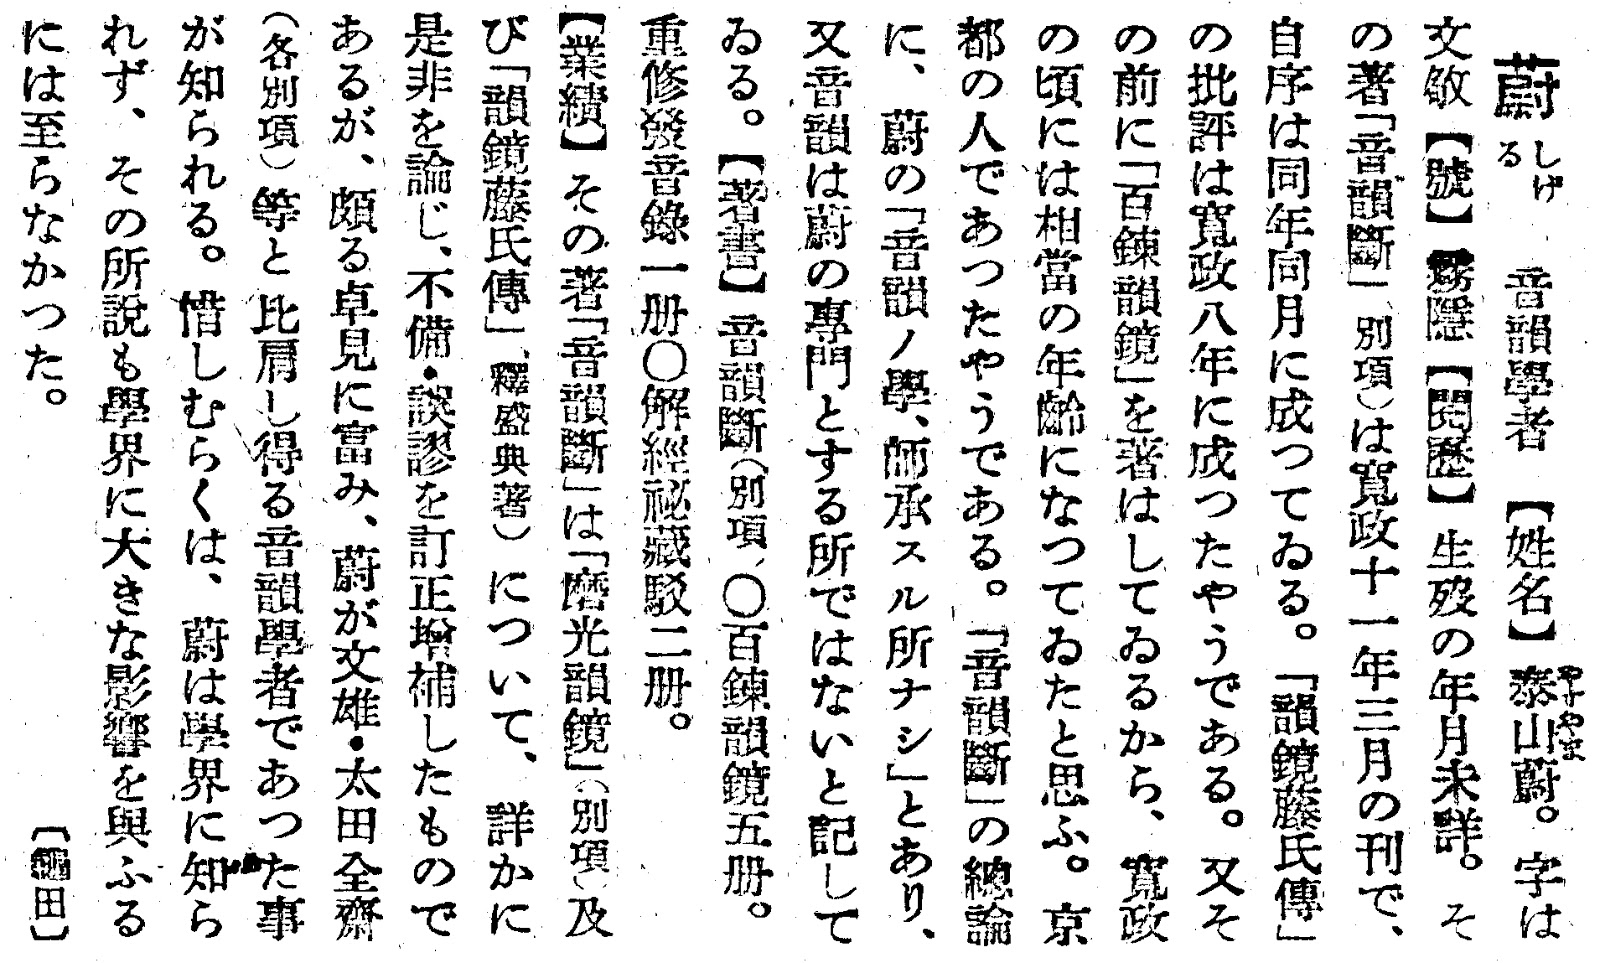 蔚 しげる 音韻學者 【姓名】泰山蔚。字は
文敬【號】霧隱【閲歷】生歿の年月未詳。そ
の著「音韻斷」（別項）は寬政十一年三月の刊で、
自序は同年同月に成つてゐる。「韻鏡藤氏傳」
の批評は寬政八年に成つたやうである。又そ
の前に「百鍊韻鏡」を著はしてゐるから、寬政
の頃には相當の年齡になつてゐたと思ふ。京
都の人であつたやうである。「音韻斷」の總論
に、蔚の「音韻ノ學、師承スル所ナシ」とあり、
又音韻は蔚の專門とする所ではないと記して
ゐる。【著書】音韻斷（別項）〇百鍊韻鏡五册。
重修發音錄一册〇解經祕藏駁二册。
【業績】その著「音韻斷」は「磨光韻鏡」（別項）及
び「韻鏡藤氏傳」（釋盛典著）について、詳かに
是非を論じ、不備・誤謬を訂正增補したもので
あるが、頗る卓見に富み、蔚が文雄・太田全齋
（各別項）等と比肩し得る音韻學者であつた事
が知られる。惜しむらくは、蔚は學界に知ら
れず、その所說も學界に大きな影響を與ふる
には至らなかつた。 〔龜田〕